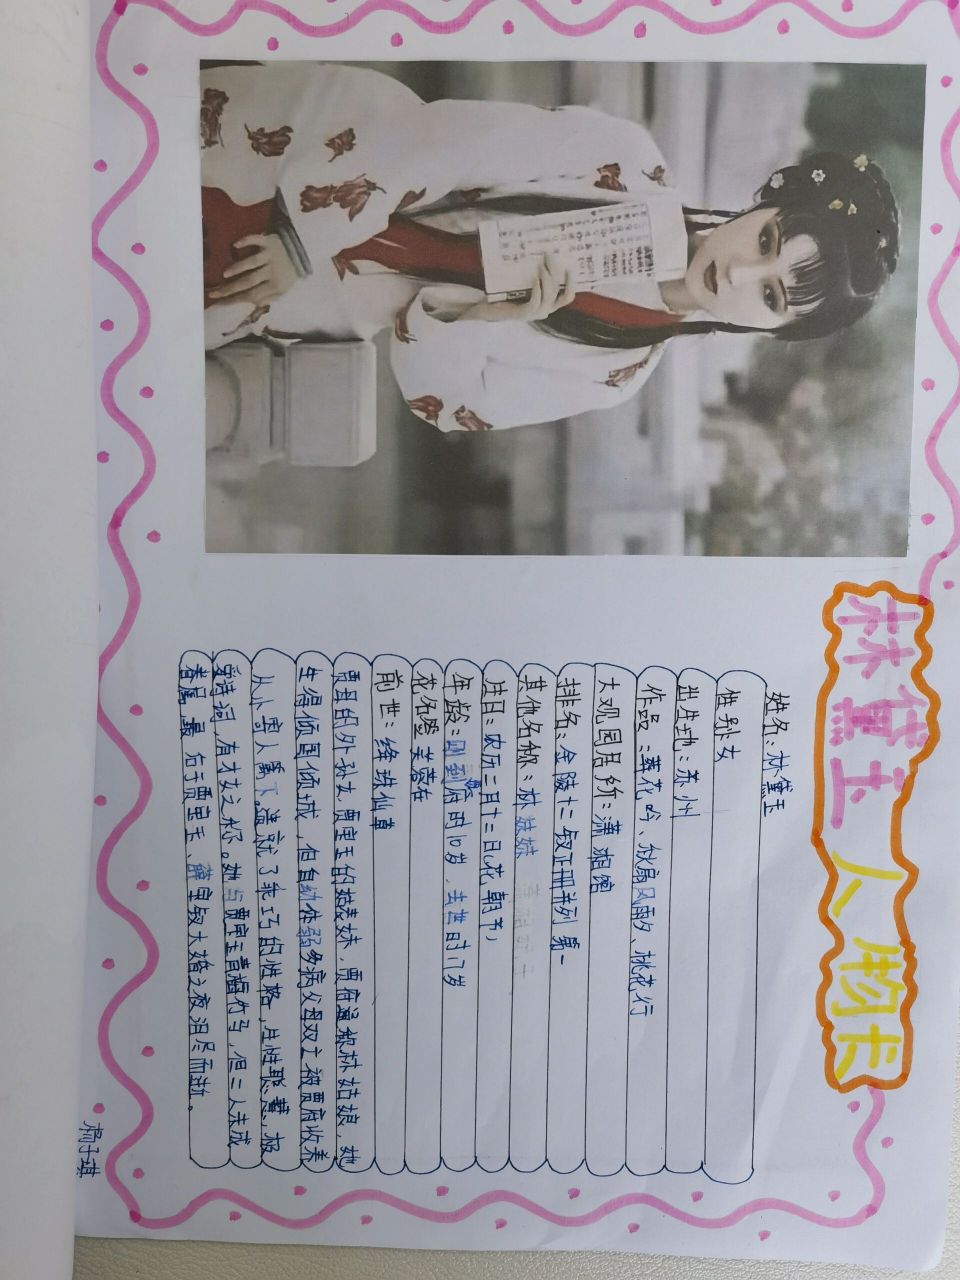 林黛玉人物卡
姓名：林黛玉
性别：女
出生地：苏州
作品：葬花吟、秋扇风雨夕、桃花行
大观园居所：潇湘馆
排名：金陵十二钗正册并列第一
其他名称：林妹妹
生日：农历二月十二日(花朝节)
年龄：刚到贾府时10岁，去世时17岁
花名签 芙蓉花
前世：绛珠仙草
贾母的外孙女，贾宝玉的姑表妹，贾府通称林姑娘，她
生得倾国倾城，但自幼体弱多病父母双亡被贾府收养
从小寄人篱下造就了乖巧的性格，生性聪慧，极
爱诗词，有才女之称。她与贾宝玉青梅竹马，但二人未成
眷属，最后于贾宝玉、薛宝钗大婚之夜泪尽而逝。
杨子琪